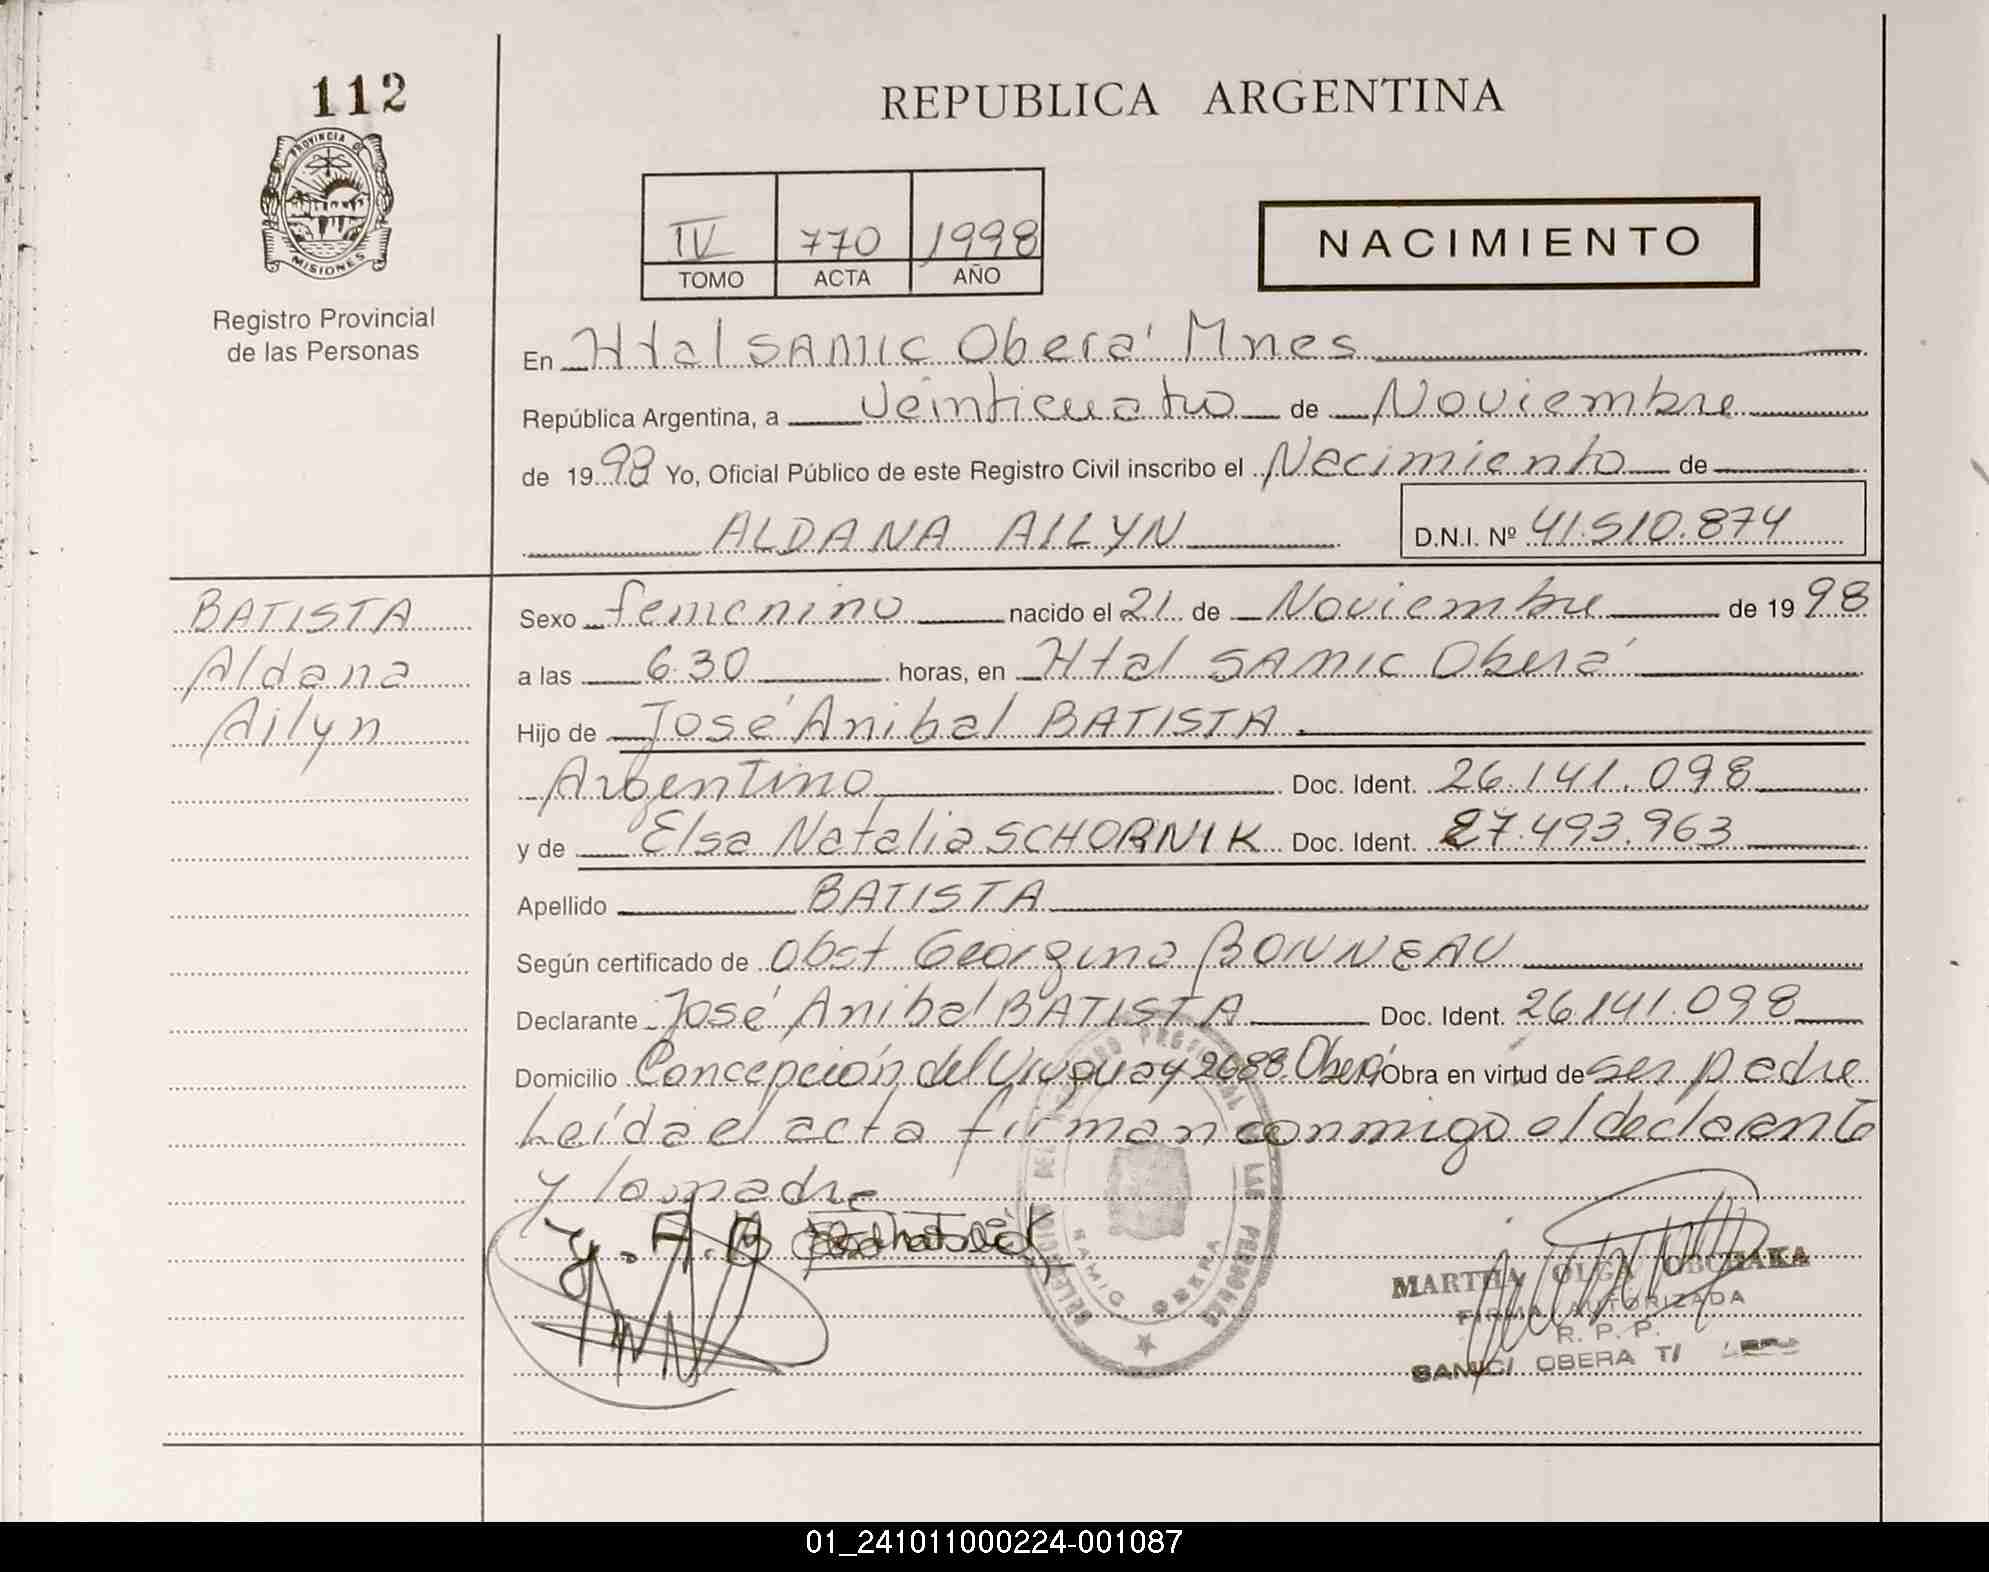 112
REPUBLICA ARGENTINA
PROVINCIA DE
MISIONES
Registro Provincial
de las Personas
IV 770 1998
TOMO ACTA AÑO
NACIMIENTO
En Htal SAMIC Oberá Mnes
República Argentina, a Veinticuatro de Noviembre
de 1998 Yo, Oficial Público de este Registro Civil inscribo el Nacimiento de
ALDANA AILYN D.N.I. Nº 41.510.874
BATISTA
Aldana
Ailyn
Sexo femenino nacido el 21 de Noviembre de 1998
a las 6.30 horas, en Htal SAMIC Oberá
Hijo de José Anibal BATISTA
Argentino Doc. Ident. 26.141.098
y de Elsa Natalia SCHORNIK Doc. Ident. 27.493.963
Apellido BATISTA
Según certificado de Obst Georgina BONNEAU
Declarante José Anibal BATISTA Doc. Ident. 26.141.098
Domicilio Concepción del Uruguay 2688. Oberá Obra en virtud de ser padre
Leída el acta firman conmigo el declarante
y la madre
DE LAS PERSONAS
SAMIC OBERA
MARTHA OLGA
FIRMA AUTORIZADA
R. P. P.
SAMIC/ OBERA T/
01_241011000224-001087